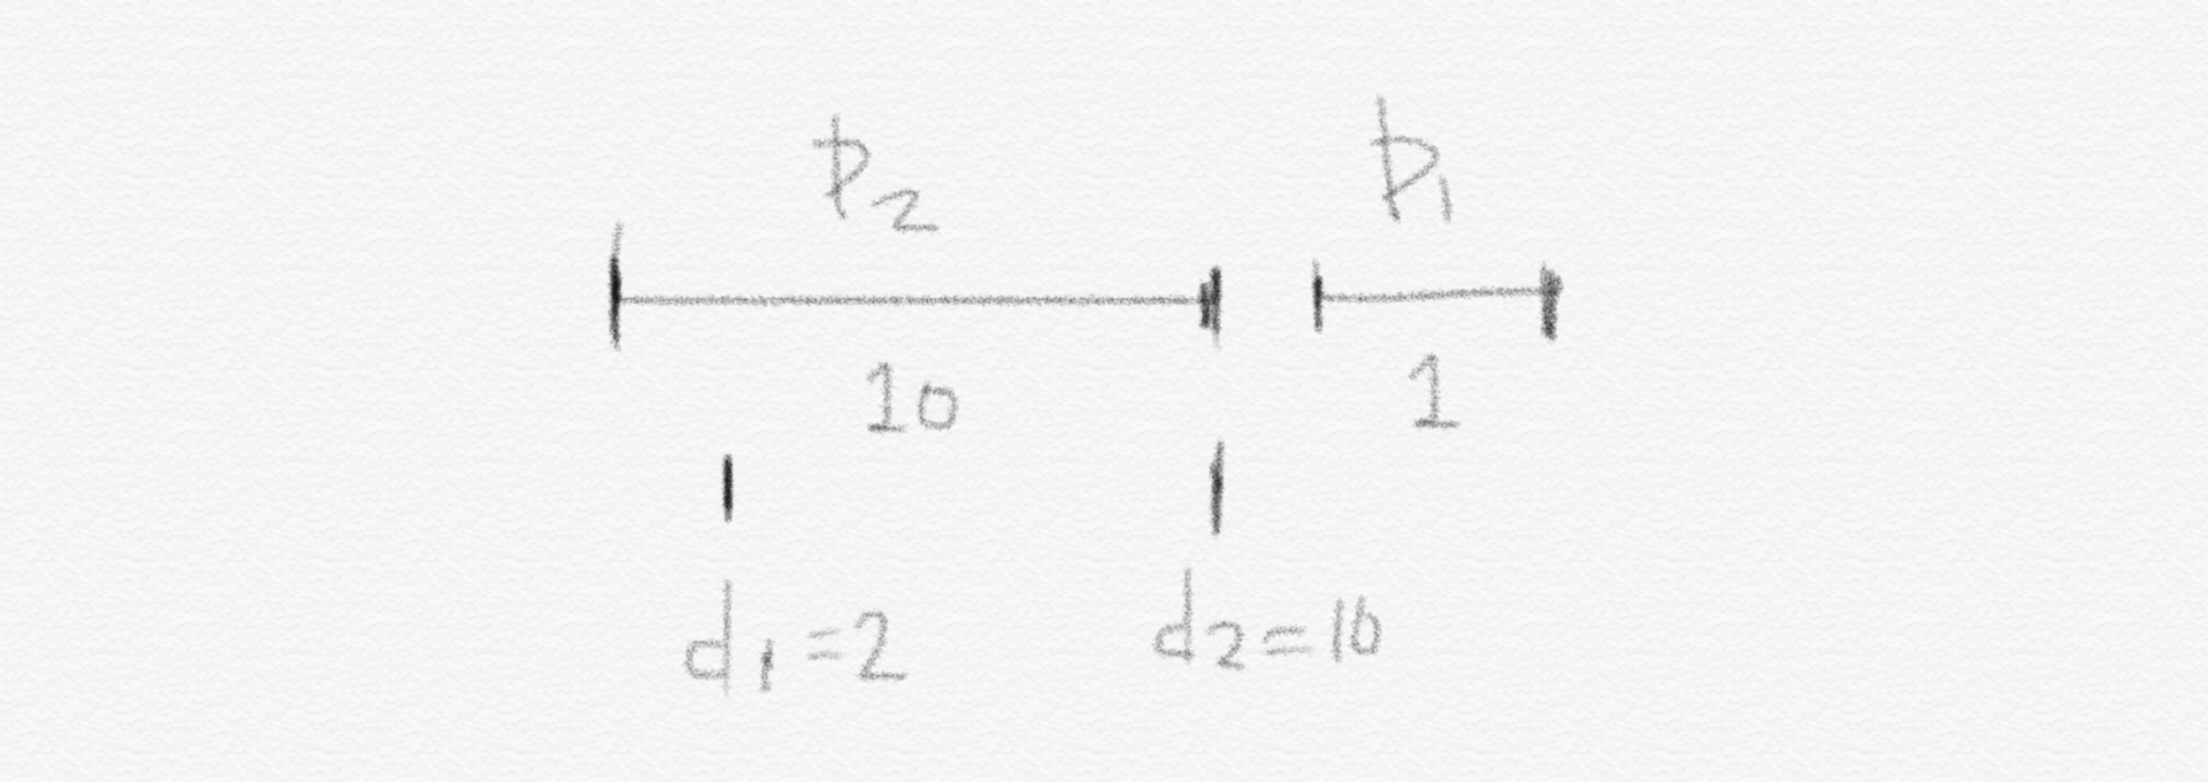 p2 p1
10 1
d1=2 d2=10